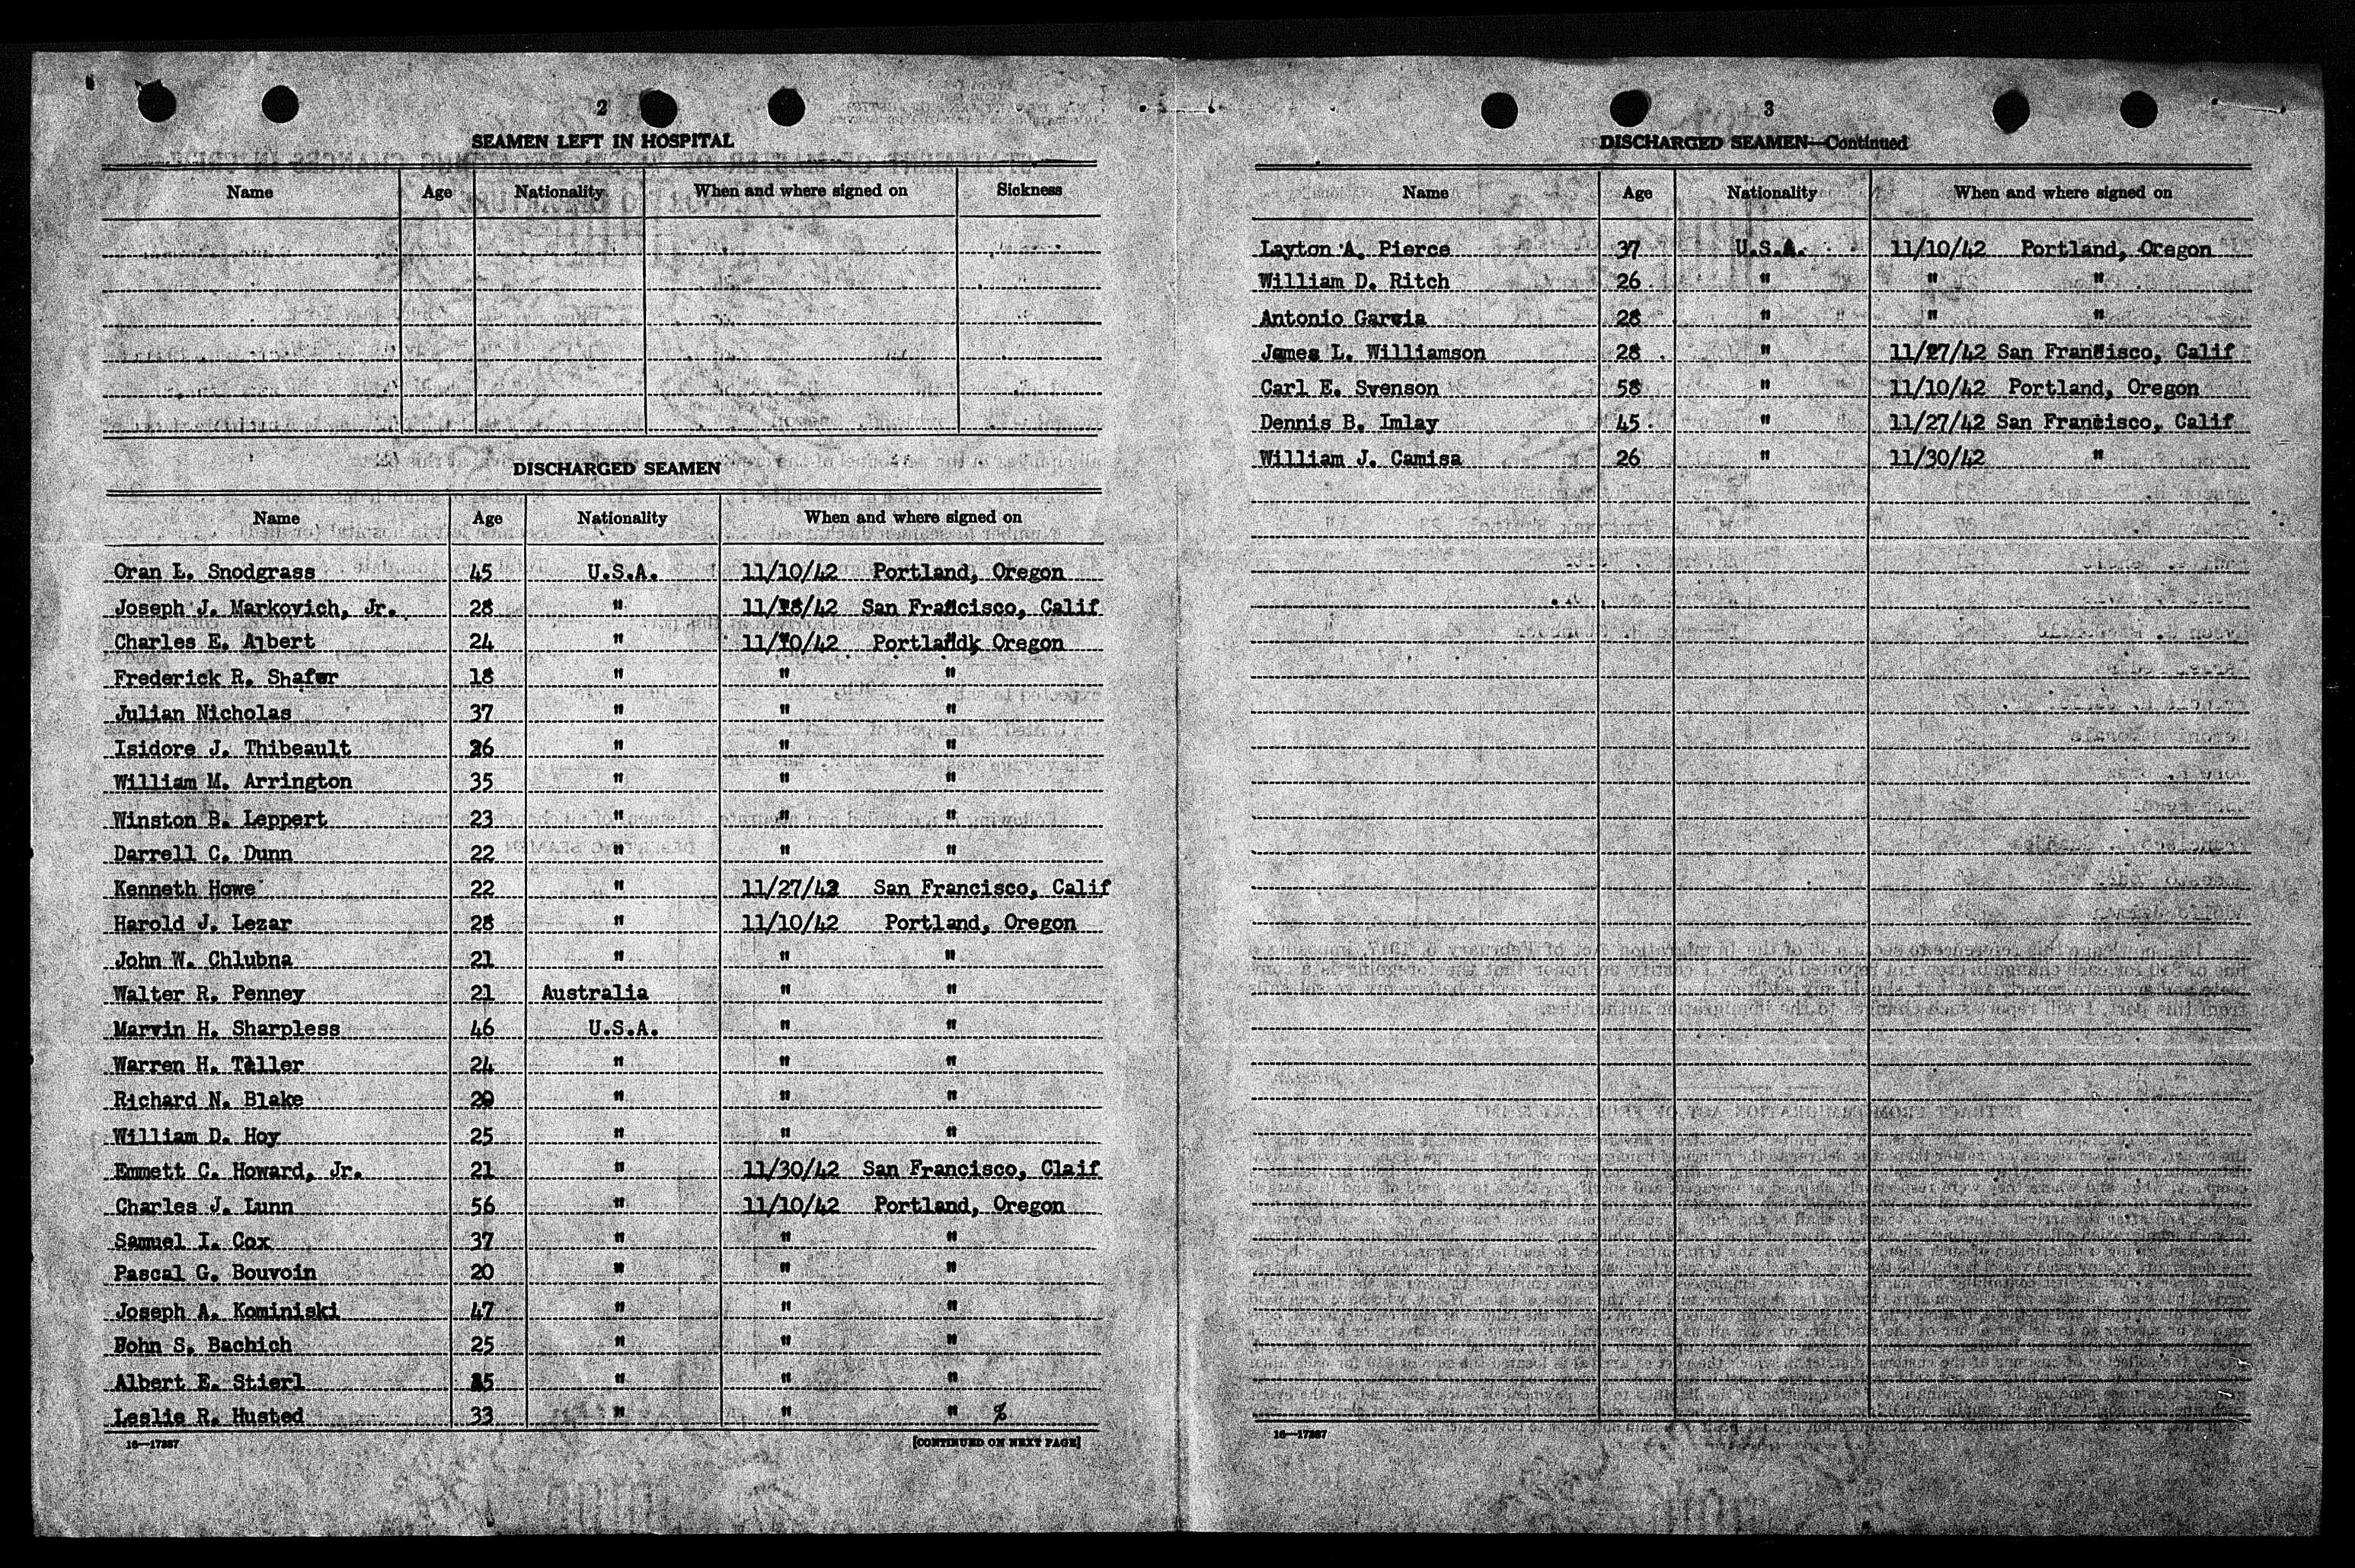 2
SEAMEN LEFT IN HOSPITAL
Name Age Nationality When and where signed on Sickness
DISCHARGED SEAMEN
Name Age Nationality When and where signed on
Oran L. Snodgrass 45 U.S.A. 11/10/42 Portland, Oregon
Joseph J. Markovich, Jr. 28 " 11/28/42 San Francisco, Calif
Charles E. Albert 24 " 11/10/42 Portland Oregon
Frederick R. Shafer 18 " " "
Julian Nicholas 37 " " "
Isidore J. Thibeault 26 " " "
William M. Arrington 35 " " "
Winston B. Leppert 23 " " "
Darrell C. Dunn 22 " " "
Kenneth Howe 22 " 11/27/42 San Francisco, Calif
Harold J. Lezar 28 " 11/10/42 Portland, Oregon
John W. Chlubna 21 " " "
Walter R. Penney 21 Australia " "
Marvin H. Sharpless 46 U.S.A. " "
Warren H. Teller 24 " " "
Richard N. Blake 20 " " "
William D. Hoy 25 " " "
Emmett C. Howard, Jr. 21 " 11/30/42 San Francisco, Claif
Charles J. Lunn 56 " 11/10/42 Portland, Oregon
Samuel I. Cox 37 " " "
Pascal G. Bouvoin 20 " " "
Joseph A. Kominiski 47 " " "
John S. Bachich 25 " " "
Albert E. Stierl " " "
Leslie R. Husted 33 " " " %
16—17887 [CONTINUED ON NEXT PAGE]
3
DISCHARGED SEAMEN—Continued
Name Age Nationality When and where signed on
Layton A. Pierce 37 U.S.A. 11/10/42 Portland, Oregon
William D. Ritch 26 " " "
Antonio Garcia 28 " " "
James L. Williamson 28 " 11/27/42 San Francisco, Calif
Carl E. Svenson 58 " 11/10/42 Portland, Oregon
Dennis B. Imlay 45 " 11/27/42 San Francisco, Calif
William J. Camisa 26 " 11/30/42 "
16—17887